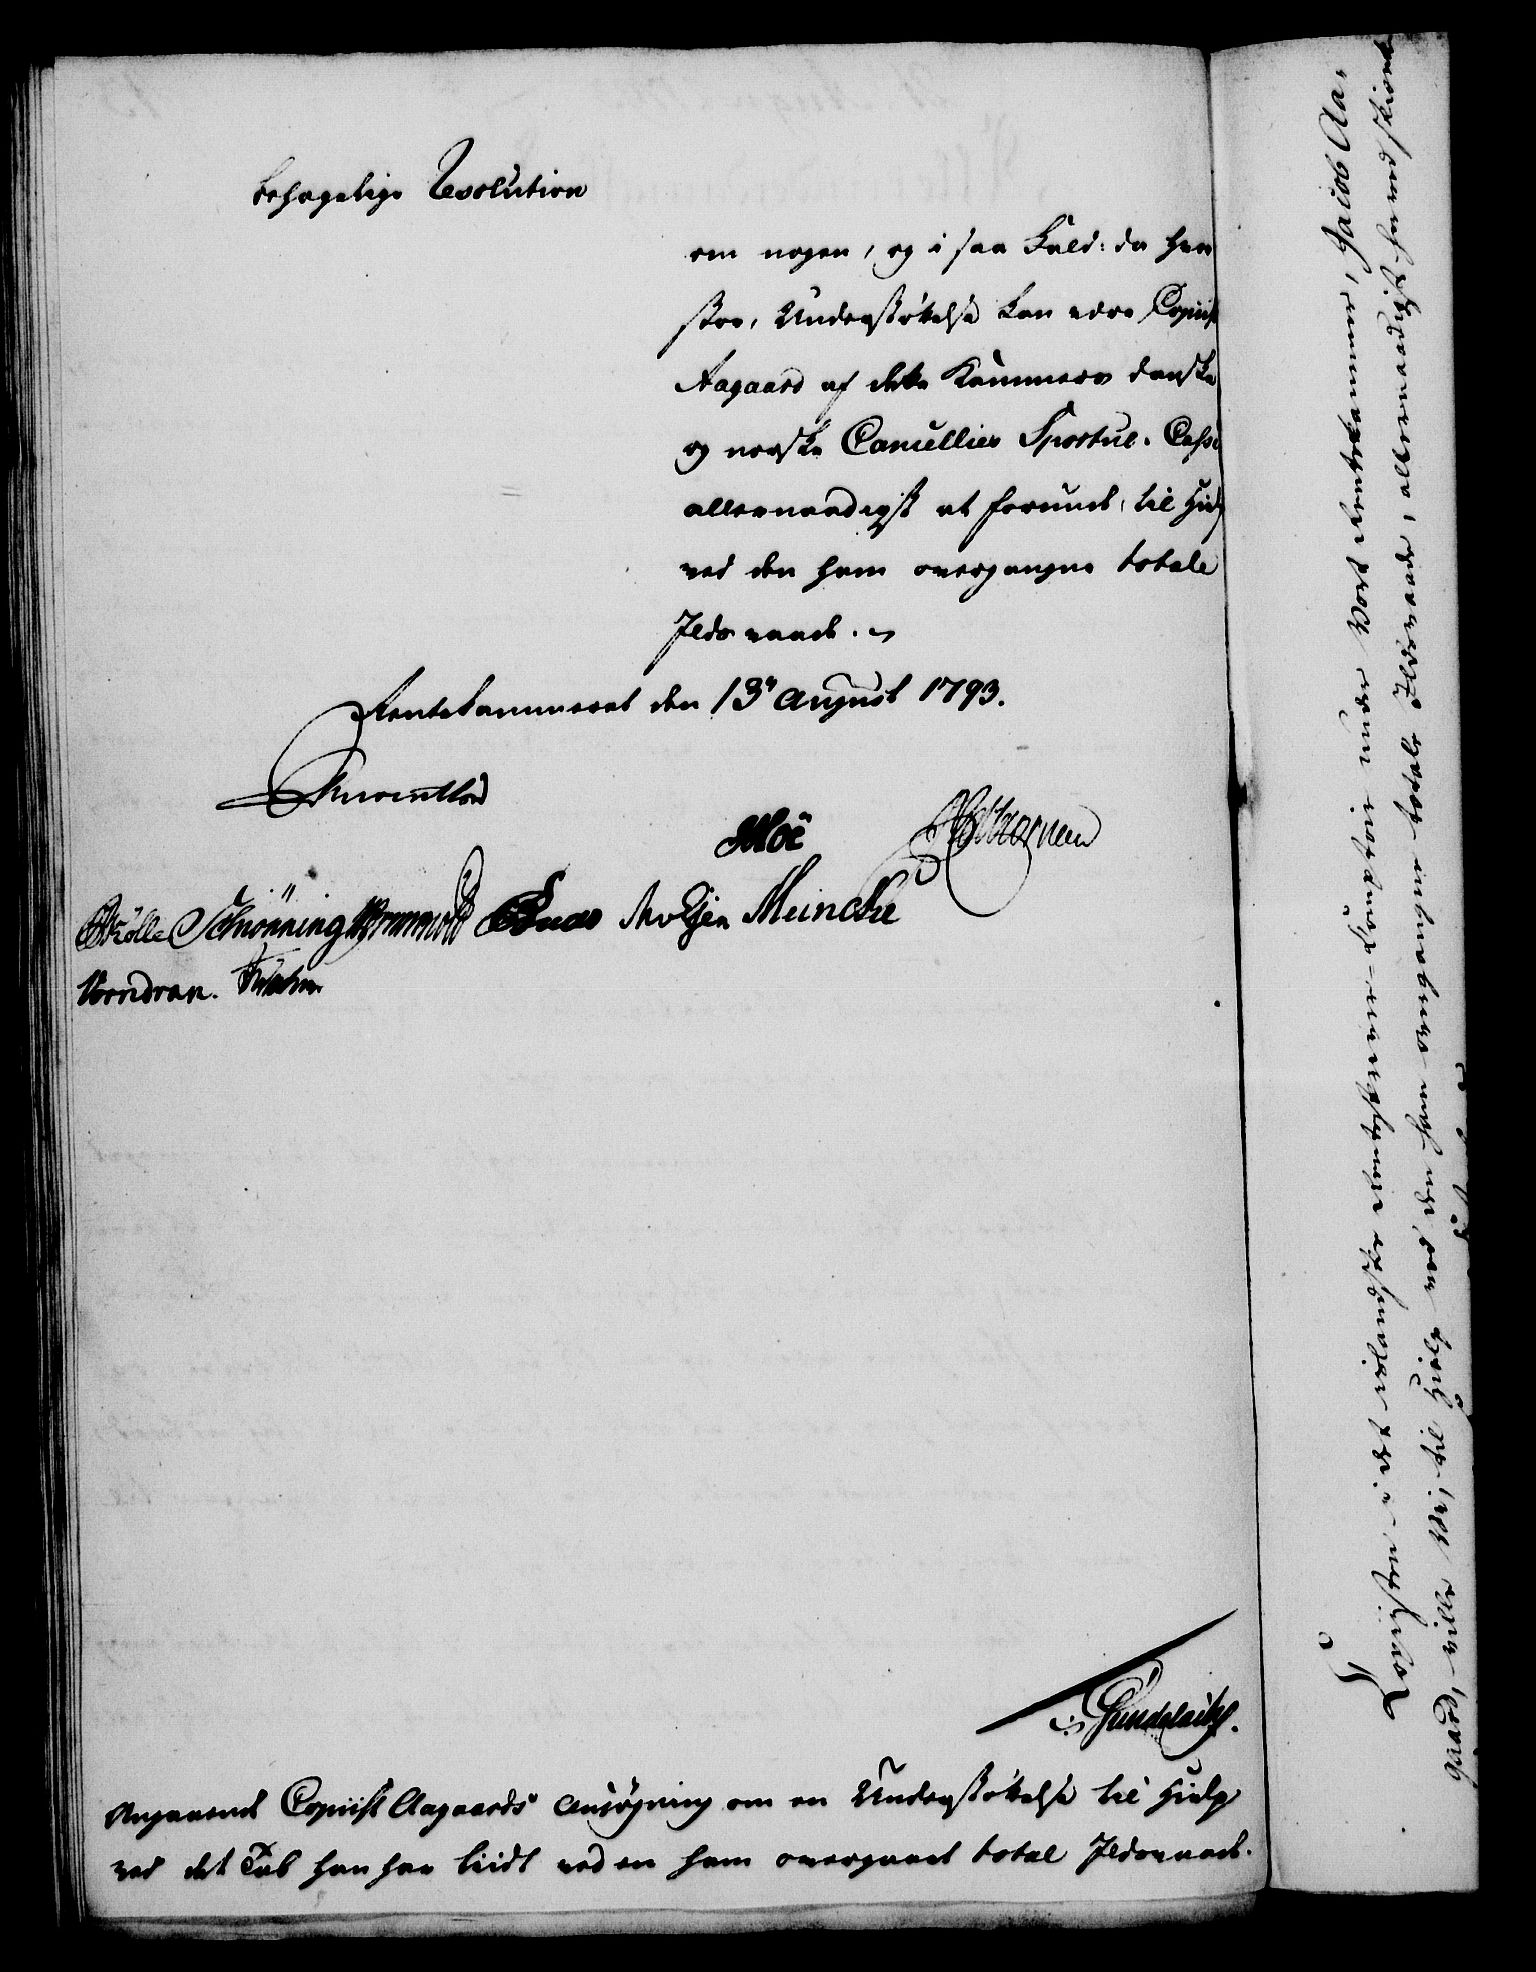 behagelige Resolution
om nogen, og i saa Fald: da hvor
stor, Understøttelse kan være Copiist
Aagaard af dette Kammers danske
og norske Cancellies Sportul-Casse
allernaadigst at forundt, til Hielp
ved den ham overgangne totale
Ildsvaade.
Rentekammeret den 13de August 1793.
Reventlow
Moë
Schiønning Meincke
Wormdran.
Gundelach.
Angaaende Copiist Aagaards Ansøgning om en Understøttelse til Hielp
ved det Tab han har liidt ved en ham overgaaet total Ildsvaade.
Copiisten i det islandske Renteskriver-Comptoir under Vort Rentekammer, Jacob Aa-
gaard, ville Vi, til Hielp ved den ham overgangne totale Ildsvaade, allernaadigst have skienket